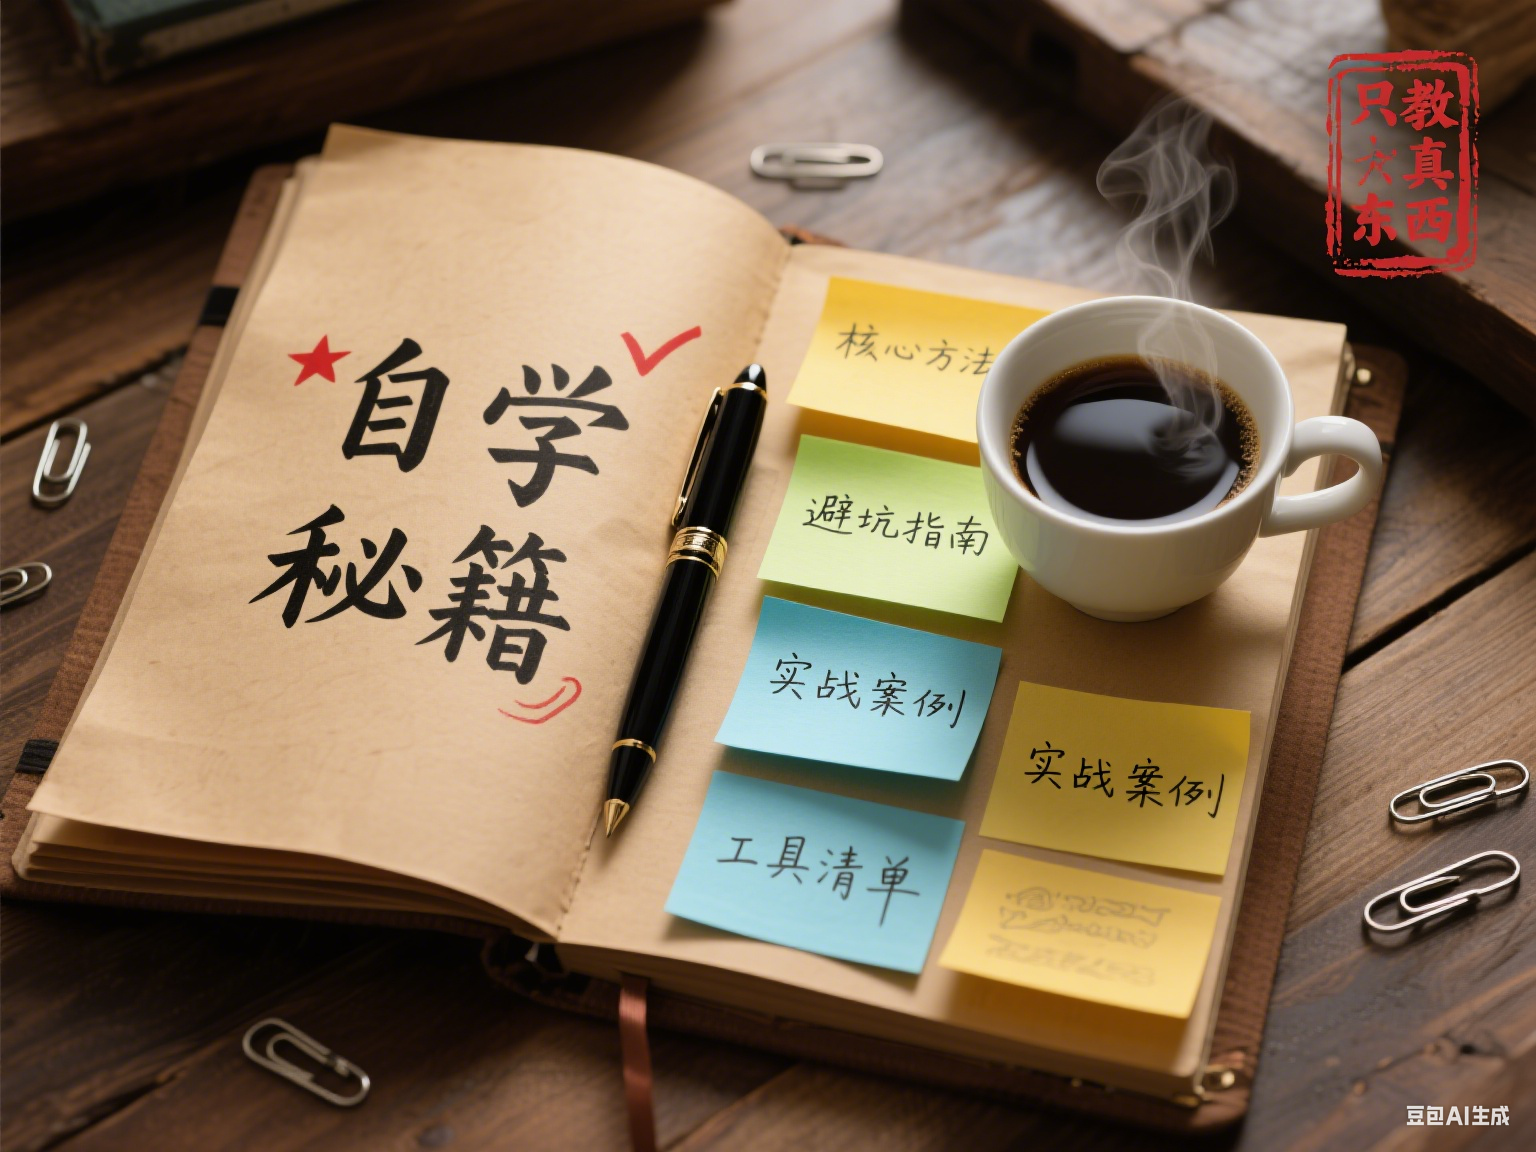 自学
秘籍
核心方法
避坑指南
实战案例
工具清单
实战案例
只教
真
东西
豆包AI生成